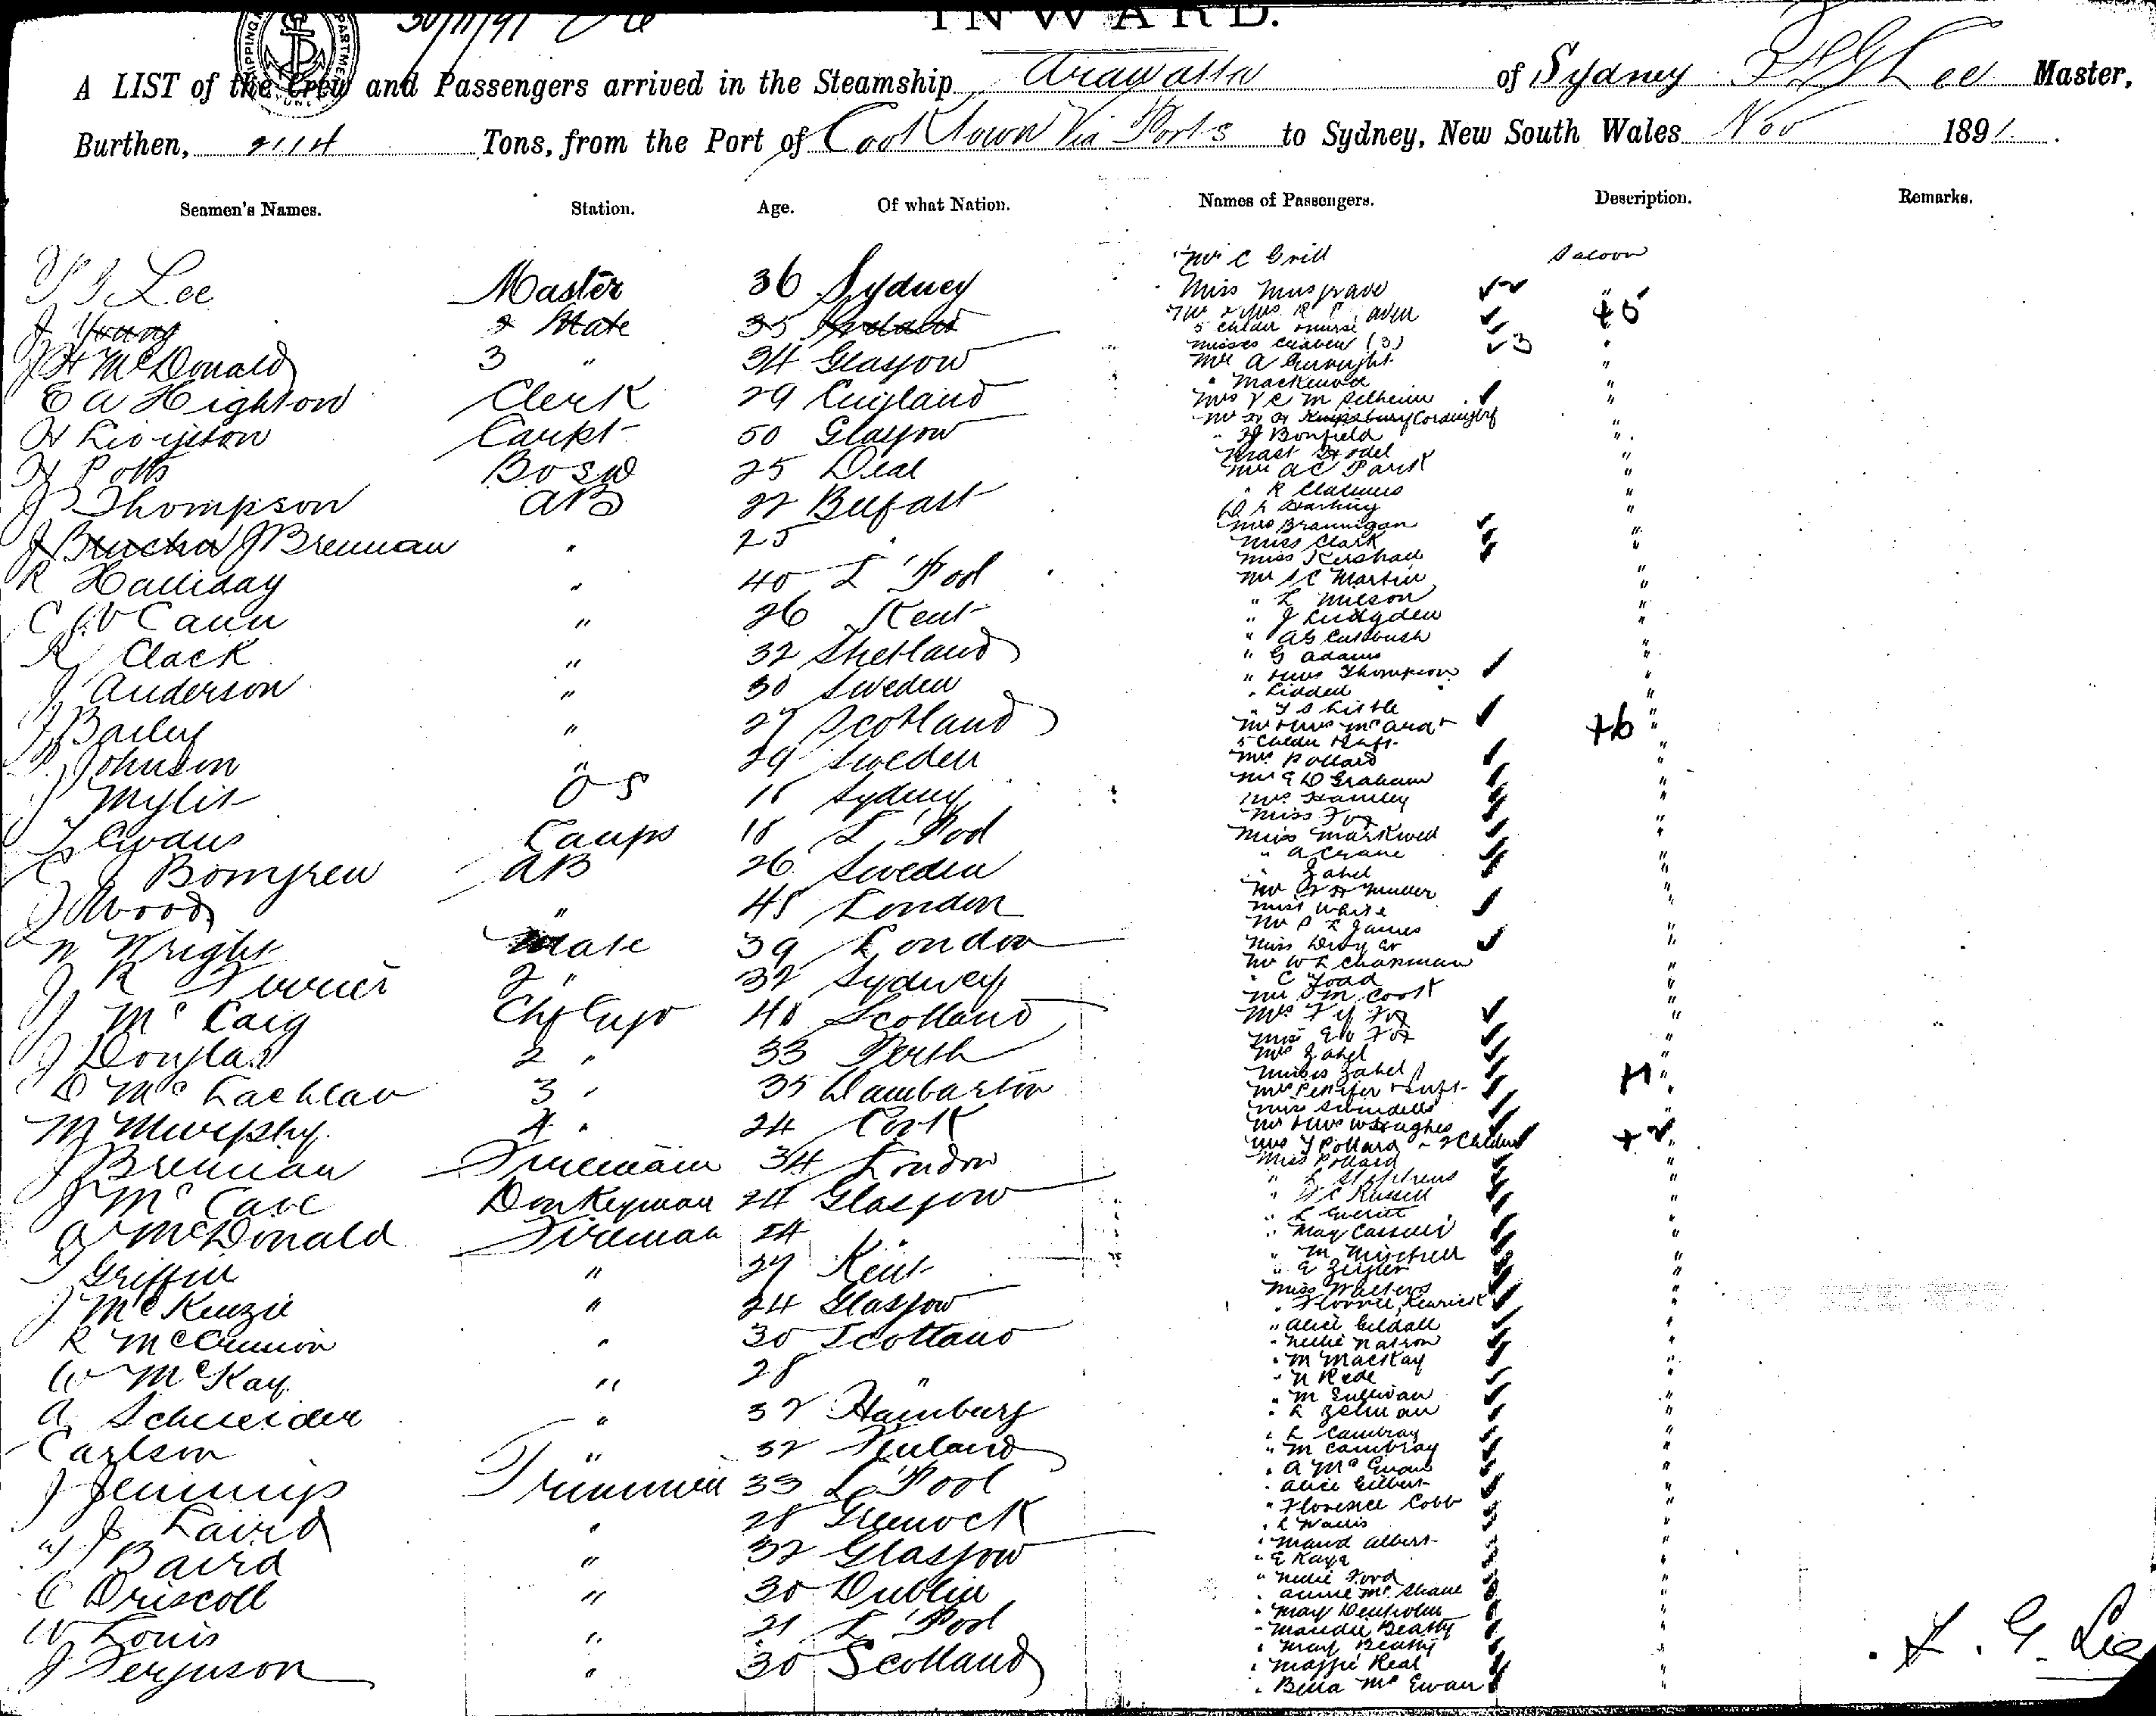 30/11/91
INWARD.
A LIST of the Crew and Passengers arrived in the Steamship Arawatta of Sydney Lee Master,
Burthen, 2114 Tons, from the Port of Cooktown Via Ports to Sydney, New South Wales Nov 1891.
Seamen's Names. Station. Age. Of what Nation. Names of Passengers. Description. Remarks.
Lee Master 36 Sydney
J Young 2 Mate 35 Ireland
J H McDonald 3 " 34 Glasgow
E A Highton Clerk 29 England
H Livingston Carpt 50 Glasgow
H Potts Bosn 25 Deal
J Thompson AB 22 Belfast
J Brennan " 25 "
R Halliday " 40 L'Pool
C W Cann " 26 Kent
R Clack " 32 Shetland
J Anderson " 30 Sweden
J Bailey " 27 Scotland
Johnson " 29 Sweden
J Mylit OS 18 Sydney
T Evans Lamps 18 L'Pool
C J Bomgren AB 26 Sweden
J Wood " 45 London
W Wright Mate 39 London
J R 2 " 32 Sydney
J McCaig Chf Engr 40 Scotland
J Douglas 2 " 33 Perth
D McLachlan 3 " 35 Dumbarton
M Murphy 4 " 24 Cork
J Brennan Fireman 34 London
J McCave Donkeyman 24 Glasgow
McDonald Fireman 24 "
Griffin " 27 Kent
J McKenzie " 24 Glasgow
R " 30 Scotland
W McKay " 28 "
A Schneider " 32 Hamburg
Carlson " 32 Finland
J Jennings Trimmer 33 L'Pool
J Laird " 28 Greenock
Baird " 32 Glasgow
C Driscoll " 30 Dublin
W Louis " 21 L'Pool
J Ferguson " 30 Scotland
Mr C Grill Saloon
Miss Musgrave "
+5
5 Childn nurse
Misses (3) 3 "
Mr A "
" Mackenzie
Mrs "
Mr
" Bonfield "
Mast
Mr A C Park "
" R "
Mrs Brannigan "
Miss Clark "
Miss Kershaw
Mr S C Martin "
" L Wilson "
" J Ludgden "
" "
" G Adams "
" & Mrs Thompson "
" Liddell "
" T S Little "
Mr & Mrs +6 "
5 Childn & Inft
Mrs Pollard "
Mr E D Graham "
Mrs Hamley "
Miss Fox "
Miss Markwell "
" A Crane "
" Zahel "
Mr Muller "
Miss White "
Mr P L James
Miss "
Mr W L Chapman
" C Toad "
Mr M Cook "
Mrs Fox "
Miss Fox "
Mrs Zahel "
Misses Zahel "
Mrs Pettifer & Inft +1 "
Miss Swindells "
Mr & Mrs W Hughes
Mrs T Pollard & 2 Childn +2 "
Miss Pollard "
" L Stephens "
" Russell "
" L Everitt "
" May "
" M Mitchell "
" E Zeigler "
Miss Walters "
" Florrie Kenrick "
" Alice Geldall "
" Nellie "
" M MacKay "
" N Rede "
" M Sullivan "
" L Zelman "
" L Cambray "
" M Cambray "
" A McEwan "
" Alice Gilbert "
" Florence Cobb "
" L Wallis "
" Maud Albert "
" E Kaye "
" Nellie Ford "
" Annie McShane "
" May Denholm "
" Maudie Beatty "
" May Beatty "
" Maggie Real "
" Bella McEwan "